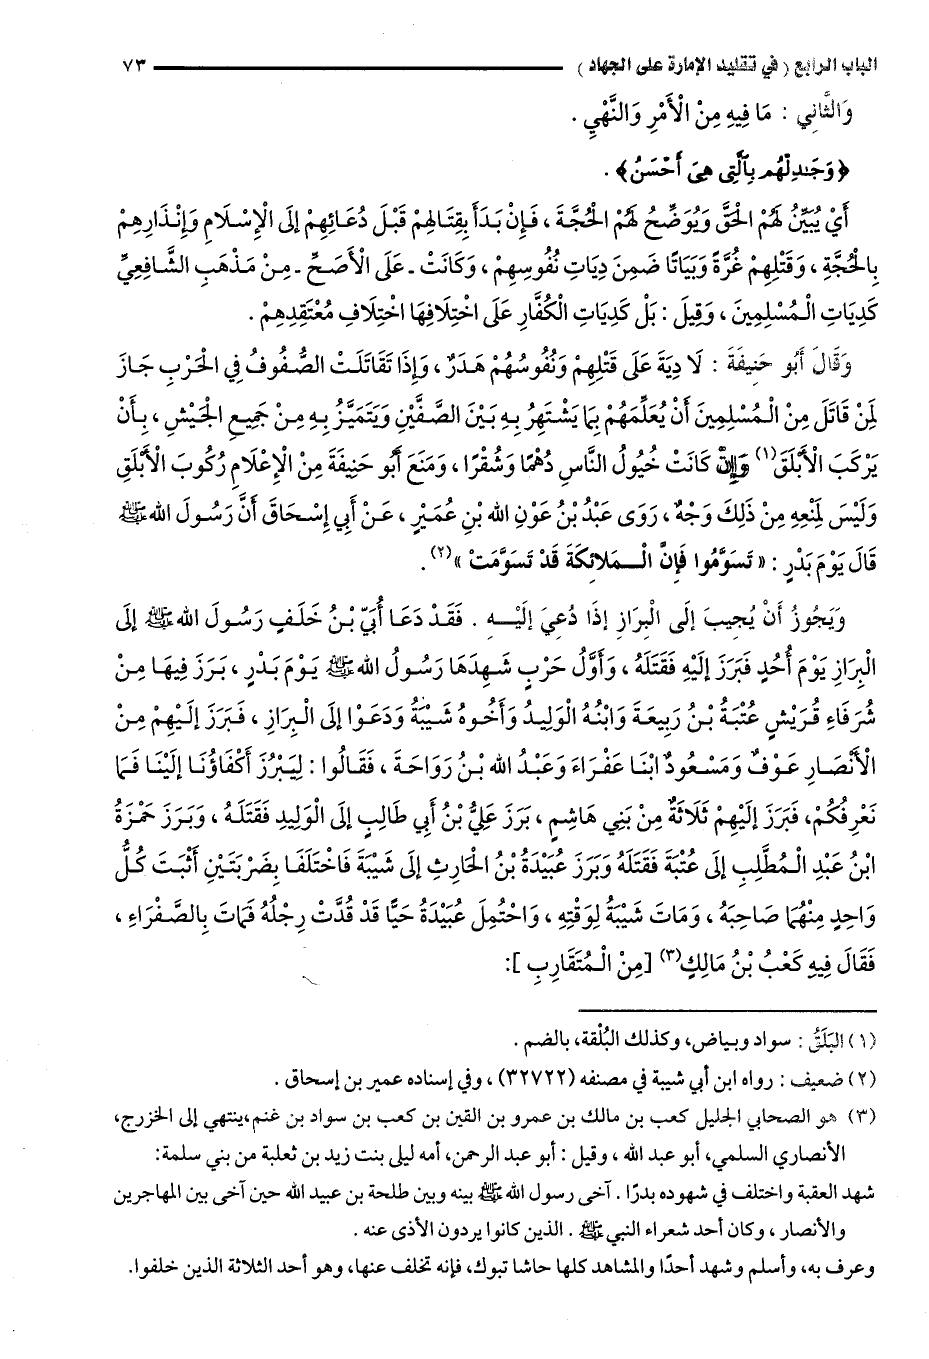 الباب الرابع ( في تقليد الإمارة على الجهاد ) ٧٣
وَالثَّانِي : مَا فِيهِ مِنْ الْأَمْرِ وَالنَّهْيِ .
﴿وَجَٰدِلْهُم بِٱلَّتِى هِىَ أَحْسَنُ﴾ .
أَيْ يُبَيِّنُ لَهُمْ الْحَقَّ وَيُوَضِّحُ لَهُمْ الْحُجَّةَ ، فَإِنْ بَدَأَ بِقِتَالِهِمْ قَبْلَ دُعَائِهِمْ إِلَى الْإِسْلَامِ وَإِنْذَارِهِمْ
بِالْحُجَّةِ ، وَقَتْلِهِمْ غُرَّةً وَبَيَاتًا ضَمِنَ دِيَاتِ نُفُوسِهِمْ ، وَكَانَتْ - عَلَى الْأَصَحِّ - مِنْ مَذْهَبِ الشَّافِعِيِّ
كَدِيَاتِ الْمُسْلِمِينَ ، وَقِيلَ : بَلْ كَدِيَاتِ الْكُفَّارِ عَلَى اخْتِلَافِهَا اخْتِلَافِ مُعْتَقِدِهِمْ .
وَقَالَ أَبُو حَنِيفَةَ : لَا دِيَةَ عَلَى قَتْلِهِمْ وَنُفُوسُهُمْ هَدَرٌ ، وَإِذَا تَقَاتَلَتْ الصُّفُوفُ فِي الْحَرْبِ جَازَ
لِمَنْ قَاتَلَ مِنْ الْمُسْلِمِينَ أَنْ يُعَلِّمَهُمْ بِمَا يَشْتَهِرُ بِهِ بَيْنَ الصَّفَّيْنِ وَيَتَمَيَّزُ بِهِ مِنْ جَمِيعِ الْجَيْشِ ، بِأَنْ
يَرْكَبَ الْأَبْلَقَ(١) وَإِنْ كَانَتْ خُيُولُ النَّاسِ دُهْمًا وَشُقْرًا ، وَمَنَعَ أَبُو حَنِيفَةَ مِنْ الْإِعْلَامِ رُكُوبَ الْأَبْلَقِ
وَلَيْسَ لِمَنْعِهِ مِنْ ذَلِكَ وَجْهٌ ، رَوَى عَبْدُ بْنُ عَوْنِ الله بْنِ عُمَيْرٍ ، عَنْ أَبِي إِسْحَاقَ أَنَّ رَسُولَ الله ﷺ
قَالَ يَوْمَ بَدْرٍ : « تَسَوَّمُوا فَإِنَّ الْمَلَائِكَةَ قَدْ تَسَوَّمَتْ »(٢).
وَيَجُوزُ أَنْ يُجِيبَ إِلَى الْبِرَازِ إِذَا دُعِيَ إِلَيْهِ . فَقَدْ دَعَا أُبَيّ بْنُ خَلَفٍ رَسُولَ الله ﷺ إِلَى
الْبِرَازِ يَوْمَ أُحُدٍ فَبَرَزَ إِلَيْهِ فَقَتَلَهُ ، وَأَوَّلُ حَرْبٍ شَهِدَهَا رَسُولُ الله ﷺ يَوْمَ بَدْرٍ ، بَرَزَ فِيهَا مِنْ
شُرَفَاءِ قُرَيْشٍ عُتْبَةُ بْنُ رَبِيعَةَ وَابْنُهُ الْوَلِيدُ وَأَخُوهُ شَيْبَةُ وَدَعَوْا إِلَى الْبِرَازِ ، فَبَرَزَ إِلَيْهِمْ مِنْ
الْأَنْصَارِ عَوْفٌ وَمَسْعُودٌ ابْنَا عَفْرَاءَ وَعَبْدُ الله بْنُ رَوَاحَةَ ، فَقَالُوا : لِيَبْرُزَ أَكْفَاؤُنَا إِلَيْنَا فَمَا
نَعْرِفُكُمْ، فَبَرَزَ إِلَيْهِمْ ثَلَاثَةٌ مِنْ بَنِي هَاشِمٍ ، بَرَزَ عَلِيُّ بْنُ أَبِي طَالِبٍ إِلَى الْوَلِيدِ فَقَتَلَهُ ، وَبَرَزَ حَمْزَةُ
ابْنُ عَبْدِ الْمُطَّلِبِ إِلَى عُتْبَةَ فَقَتَلَهُ وَبَرَزَ عُبَيْدَةُ بْنُ الْحَارِثِ إِلَى شَيْبَةَ فَاخْتَلَفَا بِضَرْبَتَيْنِ أَثْبَتَ كُلُّ
وَاحِدٍ مِنْهُمَا صَاحِبَهُ ، وَمَاتَ شَيْبَةُ لِوَقْتِهِ ، وَاحْتُمِلَ عُبَيْدَةُ حَيًّا قَدْ قُدَّتْ رِجْلُهُ فَمَاتَ بِالصَّفْرَاءِ ،
فَقَالَ فِيهِ كَعْبُ بْنُ مَالِكٍ(٣) [مِنْ الْمُتَقَارِبِ ]:
(١) البَلَقُ : سواد وبياض، وكذلك البُلْقة، بالضم .
(٢) ضعيف : رواه ابن أبي شيبة في مصنفه (٣٢٧٢٢) ، وفي إسناده عمير بن إسحاق .
(٣) هو الصحابي الجليل كعب بن مالك بن عمرو بن القين بن كعب بن سواد بن غنم،ينتهي إلى الخزرج،
الأنصاري السلمي، أبو عبد الله ، وقيل : أبو عبد الرحمن، أمه ليلى بنت زيد بن ثعلبة من بني سلمة:
شهد العقبة واختلف في شهوده بدرًا . آخى رسول الله ﷺ بينه وبين طلحة بن عبيد الله حين آخى بين المهاجرين
والأنصار ، وكان أحد شعراء النبي ﷺ . الذين كانوا يردون الأذى عنه .
وعرف به، وأسلم وشهد أحدًا والمشاهد كلها حاشا تبوك، فإنه تخلف عنها، وهو أحد الثلاثة الذين خلفوا.